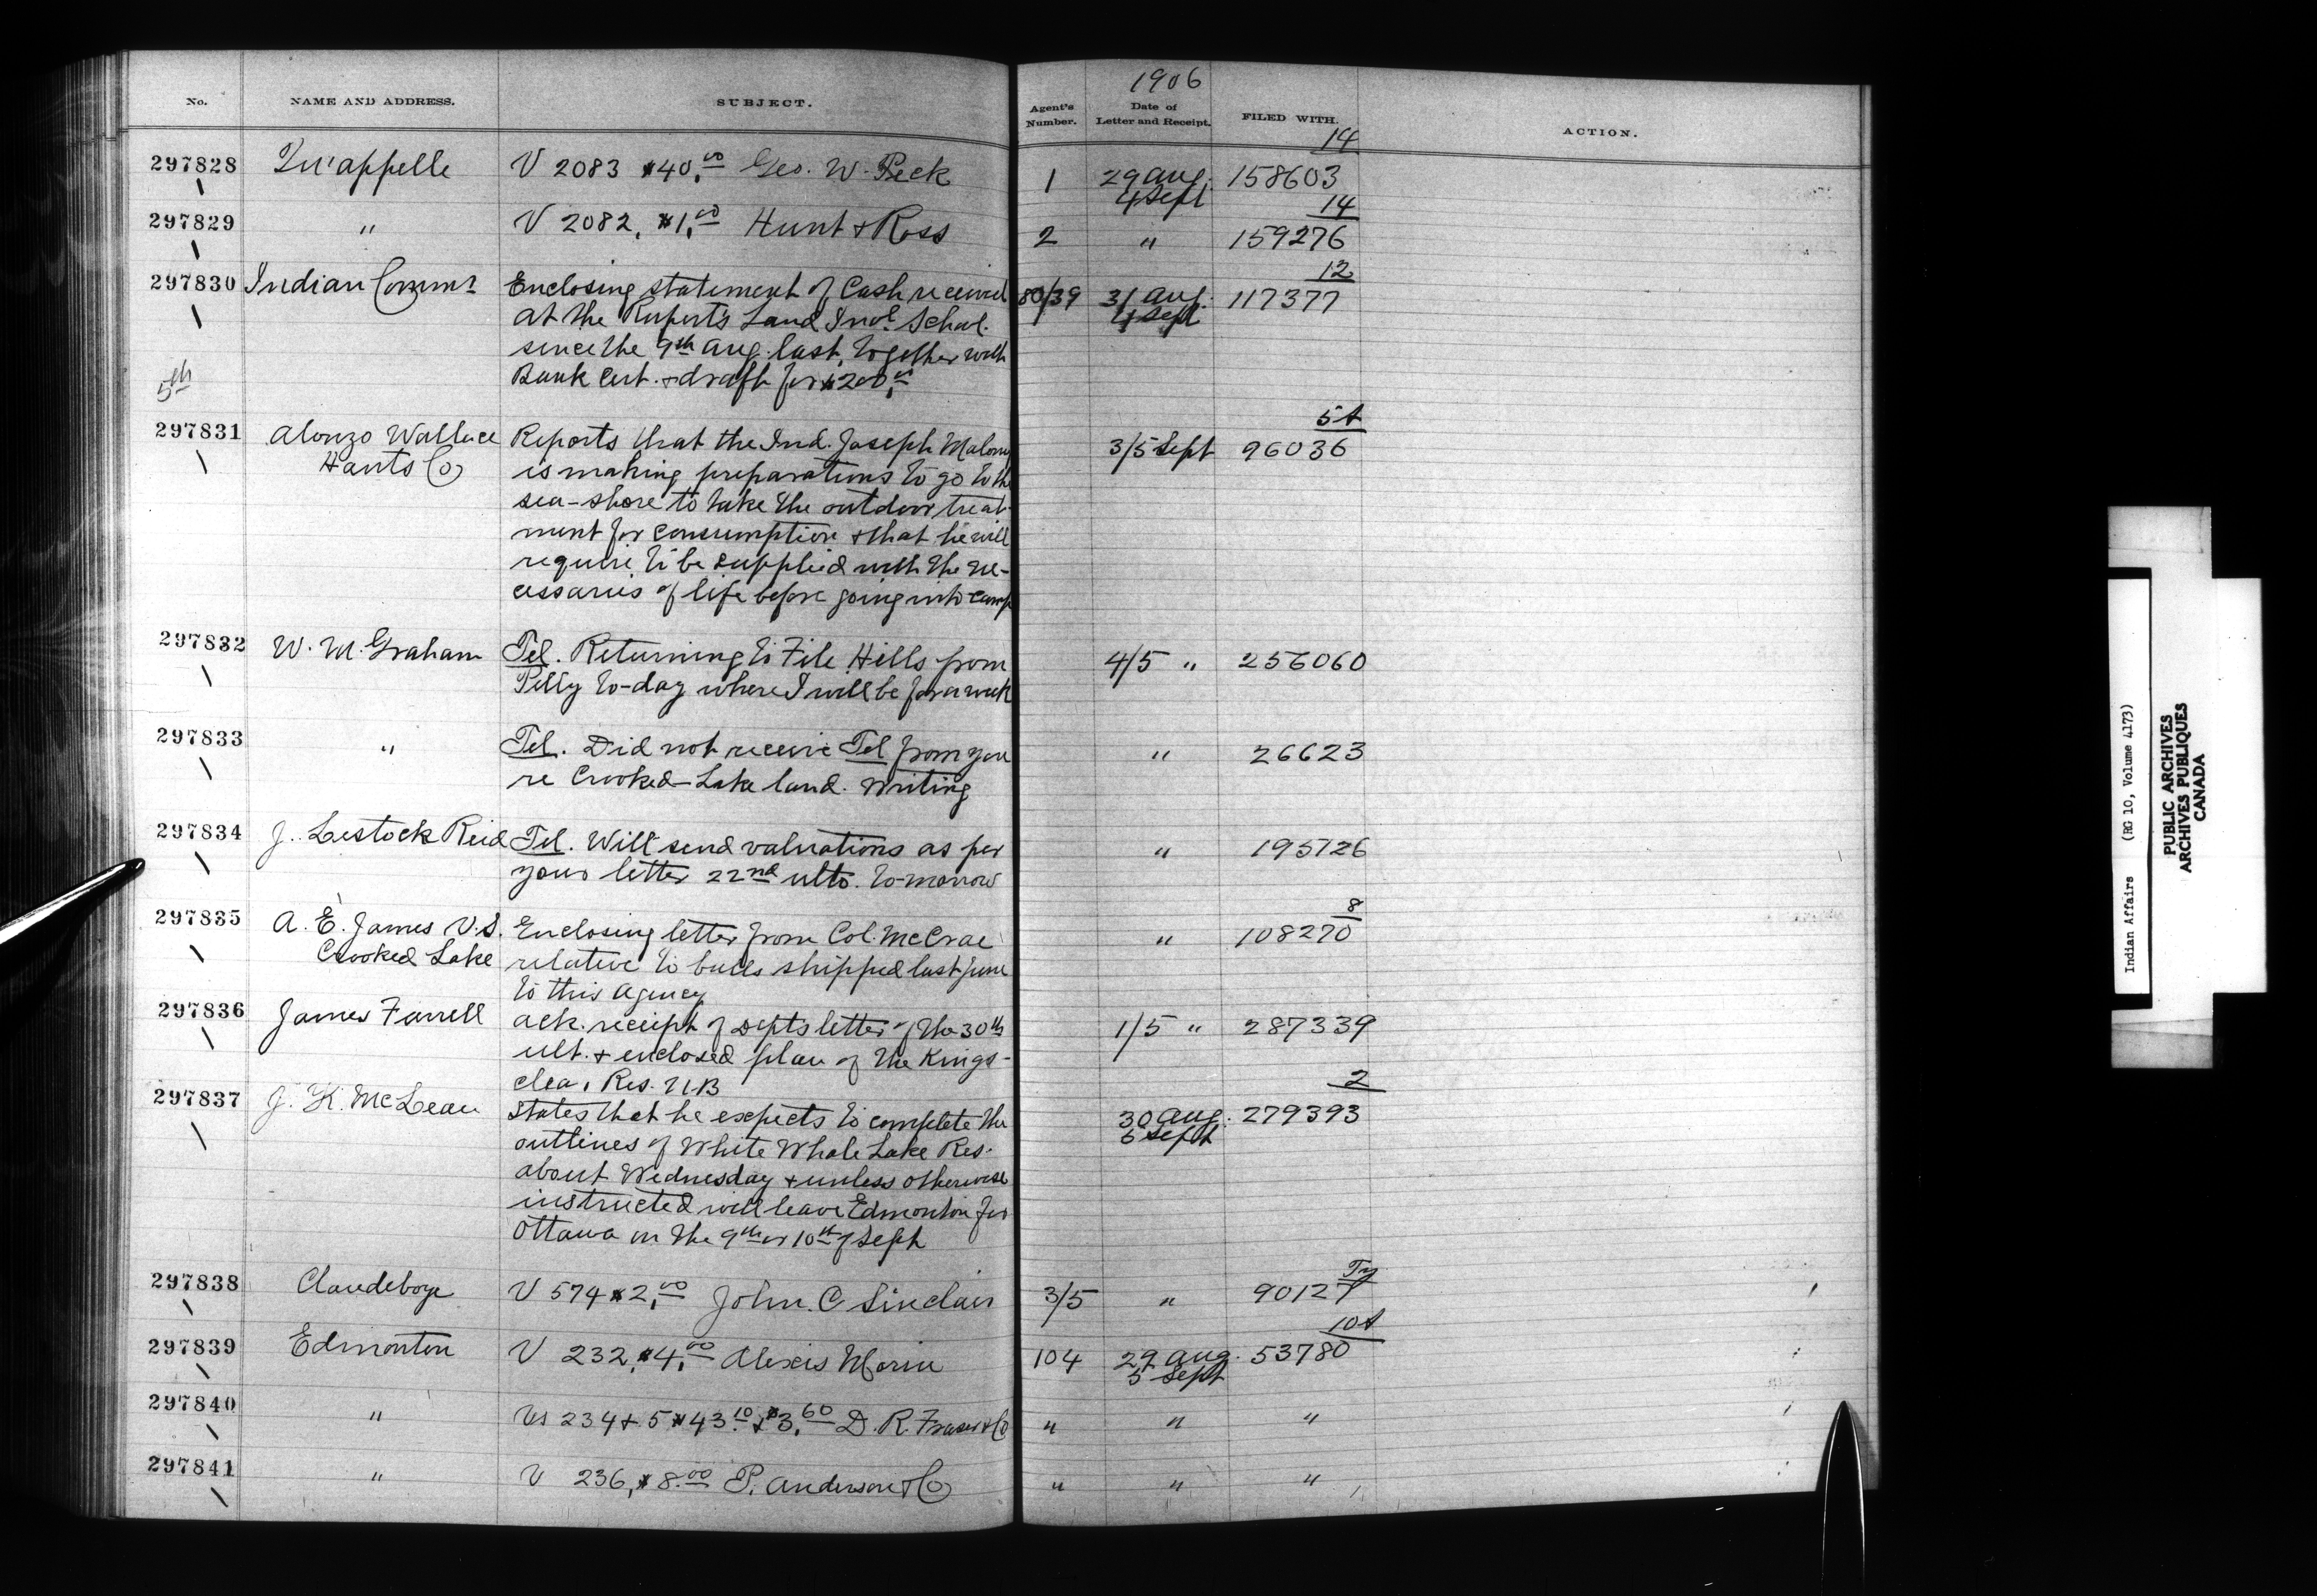 1906
No. NAME AND ADDRESS. SUBJECT. Agent's Number. Date of Letter and Receipt. FILED WITH. ACTION.
14
297828 Qu'appelle V 2083 $40.00 Geo. W. Peck 1 29 Aug. 158603
4 Sept
14
297829 " V 2082, $1.00 Hunt & Ross 2 " 159276
12
297830 Indian Commr Enclosing statement of Cash received 80/39 31 Aug. 117377
at the Rupert's Land Indl School 4 Sept
since the 9th Aug. last, together with
Bank Cert. & draft for $200.00
5th
5A
297831 Alonzo Wallace Reports that the Ind. Joseph Malony 3/5 Sept 96036
Hants Co is making preparations to go to the
sea-shore to take the outdoor treat-
ment for consumption & that he will
require to be supplied with the ne-
cessaries of life before going into camp
297832 W. M. Graham Tel. Returning to File Hills from 4/5 " 256060
Pelly to-day where I will be for a week
297833 " Tel. Did not receive Tel from you " 26623
re Crooked Lake land. Writing
297834 J. Lestock Reid Tel. Will send valuations as per " 195726
your letter 22nd ulto. to-morrow
8
297835 A. E. James V.S. Enclosing letter from Col. McCrae " 108270
Crooked Lake relative to bulls shipped last June
to this Agency
297836 James Farrell Ack. receipt of Depts letter of the 30th 1/5 " 287339
ult. & enclosed plan of the Kings-
clear Res. N.B
2
297837 J. K. McLean States that he expects to complete the 30 Aug. 279393
outlines of White Whale Lake Res. 5 Sept
about Wednesday & unless otherwise
instructed will leave Edmonton for
Ottawa on the 9th or 10th of Sept
297838 Clandeboye V 574 $2.00 John. C Sinclair 3/5 " 90127
10A
297839 Edmonton V 232, $4.00 Alexis Morin 104 29 Aug. 53780
5 Sept
297840 " Vs 234 & 5 $43.10 & $3.60 D. R. Fraser & Co " " "
297841 " V 236, $8.00 P. Anderson & Co " " "
Indian Affairs (RG 10, Volume 4173)
PUBLIC ARCHIVES
ARCHIVES PUBLIQUES
CANADA